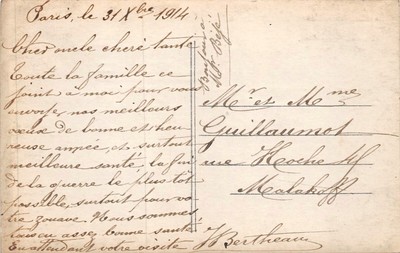 Paris, le 31 Xbre 1914
Cher oncle chere tante
Toute la famille ce
joint a moi pour vous
envoyer nos meilleurs
voeux de bonne et heu
reuse année, et surtout
meilleure santé, la fin
de la guerre le plus tot
possible, surtout pour vo
tre zouave. Nous sommes
tous en assez bonne santé
En attendant votre visite
J Bertheau
Bonjour à
Mr
Mr et Mme
Guillaumot
rue Hoche
Malakoff